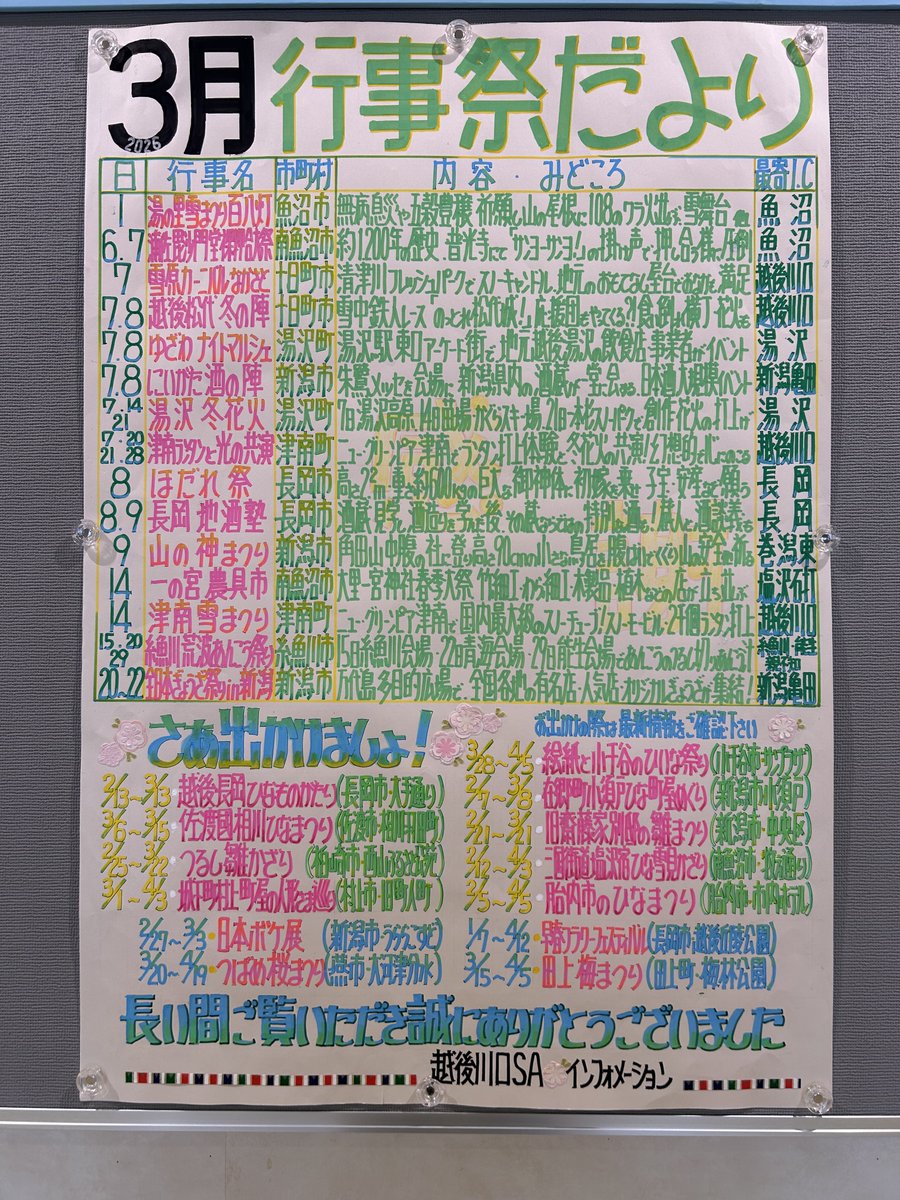 3月 行事祭だより
2026
日 行事名 市町村 内容・みどころ 最寄I.C
1 湯の里雪まつり百八灯 魚沼市 無病息災や五穀豊穣祈願し山の尾根に108のワラ火 雪舞台 他 魚沼
6.7 南魚沼市 約1200年の歴史、普光寺にて「サンヨ・サンヨ!」の掛け声で押し合う様は圧倒 魚沼
7 雪原カーニバルなかさと 十日町市 清津川フレッシュパークでスノーキャンドル、地元のおもてなし屋台とおなかも満足 越後川口
7.8 越後松代 冬の陣 十日町市 雪中鉄人レース「のっとれ!松代城!」応援団もやってくる 食い倒し横丁 花火も 越後川口
7.8 ゆざわ ナイトマルシェ 湯沢町 湯沢駅東口アーケード街で、地元越後湯沢の飲食店・事業者がイベント 湯沢
7.8 にいがた酒の陣 新潟市 朱鷺メッセを会場に新潟県内の酒蔵が一堂に会する日本酒大規模イベント 新潟亀田
7.14 21 湯沢 冬花火 湯沢町 7日湯沢高原、14日岩原 スキー場、21日 スノーパークで創作花火の打上げ 湯沢
7.20 21.28 津南ランタンと光の共演 津南町 ニュー・グリーンピア津南でランタン打上体験と冬花火の共演!幻想的 越後川口
8 ほだれ祭 長岡市 高さ2.2m 重さ約600kgの巨大な御神体に初嫁を乗せ子宝・安産などを願う 長岡
8.9 長岡 地酒塾 長岡市 酒蔵見学し酒造りを学んだ後、その蔵 長岡
9 山の神まつり 新潟市 角田山中腹の社に登り高さ90cmの小さな鳥居を腹ばいでくぐり山の安全を祈る 巻潟東
14 一の宮 農具市 南魚沼市 大里一宮神社春季大祭 竹細工から細工・木製品・植木などの店が立ち並ぶ 塩沢石打
14 津南雪まつり 津南町 ニュー・グリーンピア津南で、国内最大級のスノーチューブ!スノーモービル・2千個ランタン打上 越後川口
15.20 29 糸魚川荒波あんこう祭り 糸魚川市 15日糸魚川会場・22日青海会場・29日能生会場であんこうのつるし切り 糸魚川・能生 親不知
20~22 全日本ぎょうざ祭りin新潟 新潟市 万代島多目的広場で、全国各地の有名店・人気店・オリジナルぎょうざが集結! 新潟亀田
さあ出かけましょ!
お出かけの際は最新情報をご確認下さい
2/13~3/13・越後長岡ひなものがたり(長岡市・大手通り)
3/6~3/15・佐渡國相川ひなまつり(佐渡市・相川 町)
2/25~3/22・つるし雛かざり(柏崎市・西山ふるさと館)
3/1~4/3・城下町村上町屋の人形さま巡り(村上市・旧町人町)
3/28~4/5・絵紙と小千谷のひな祭り(小千谷市・サンプラザ)
2/7~3/8・在郷町小須戸ひな町屋めぐり(新潟市・小須戸)
2/21~3/21・旧齋藤家別邸の雛まつり(新潟市・中央区)
2/12~4/3・三国街道塩沢宿ひな雪見かざり(南魚沼市・牧之通り)
2/5~4/5・胎内市のひなまつり(胎内市・市内 )
2/27~3/3・日本ボケ展(新潟市・うららこすど)
3/20~4/19・つばめ桜まつり(燕市・大河津分水)
1/7~4/12・早春フラワーフェスティバル(長岡市・越後丘陵公園)
3/15~4/5・田上梅まつり(田上町・梅林公園)
長い間ご覧いただき誠にありがとうございました
越後川口SA インフォメーション